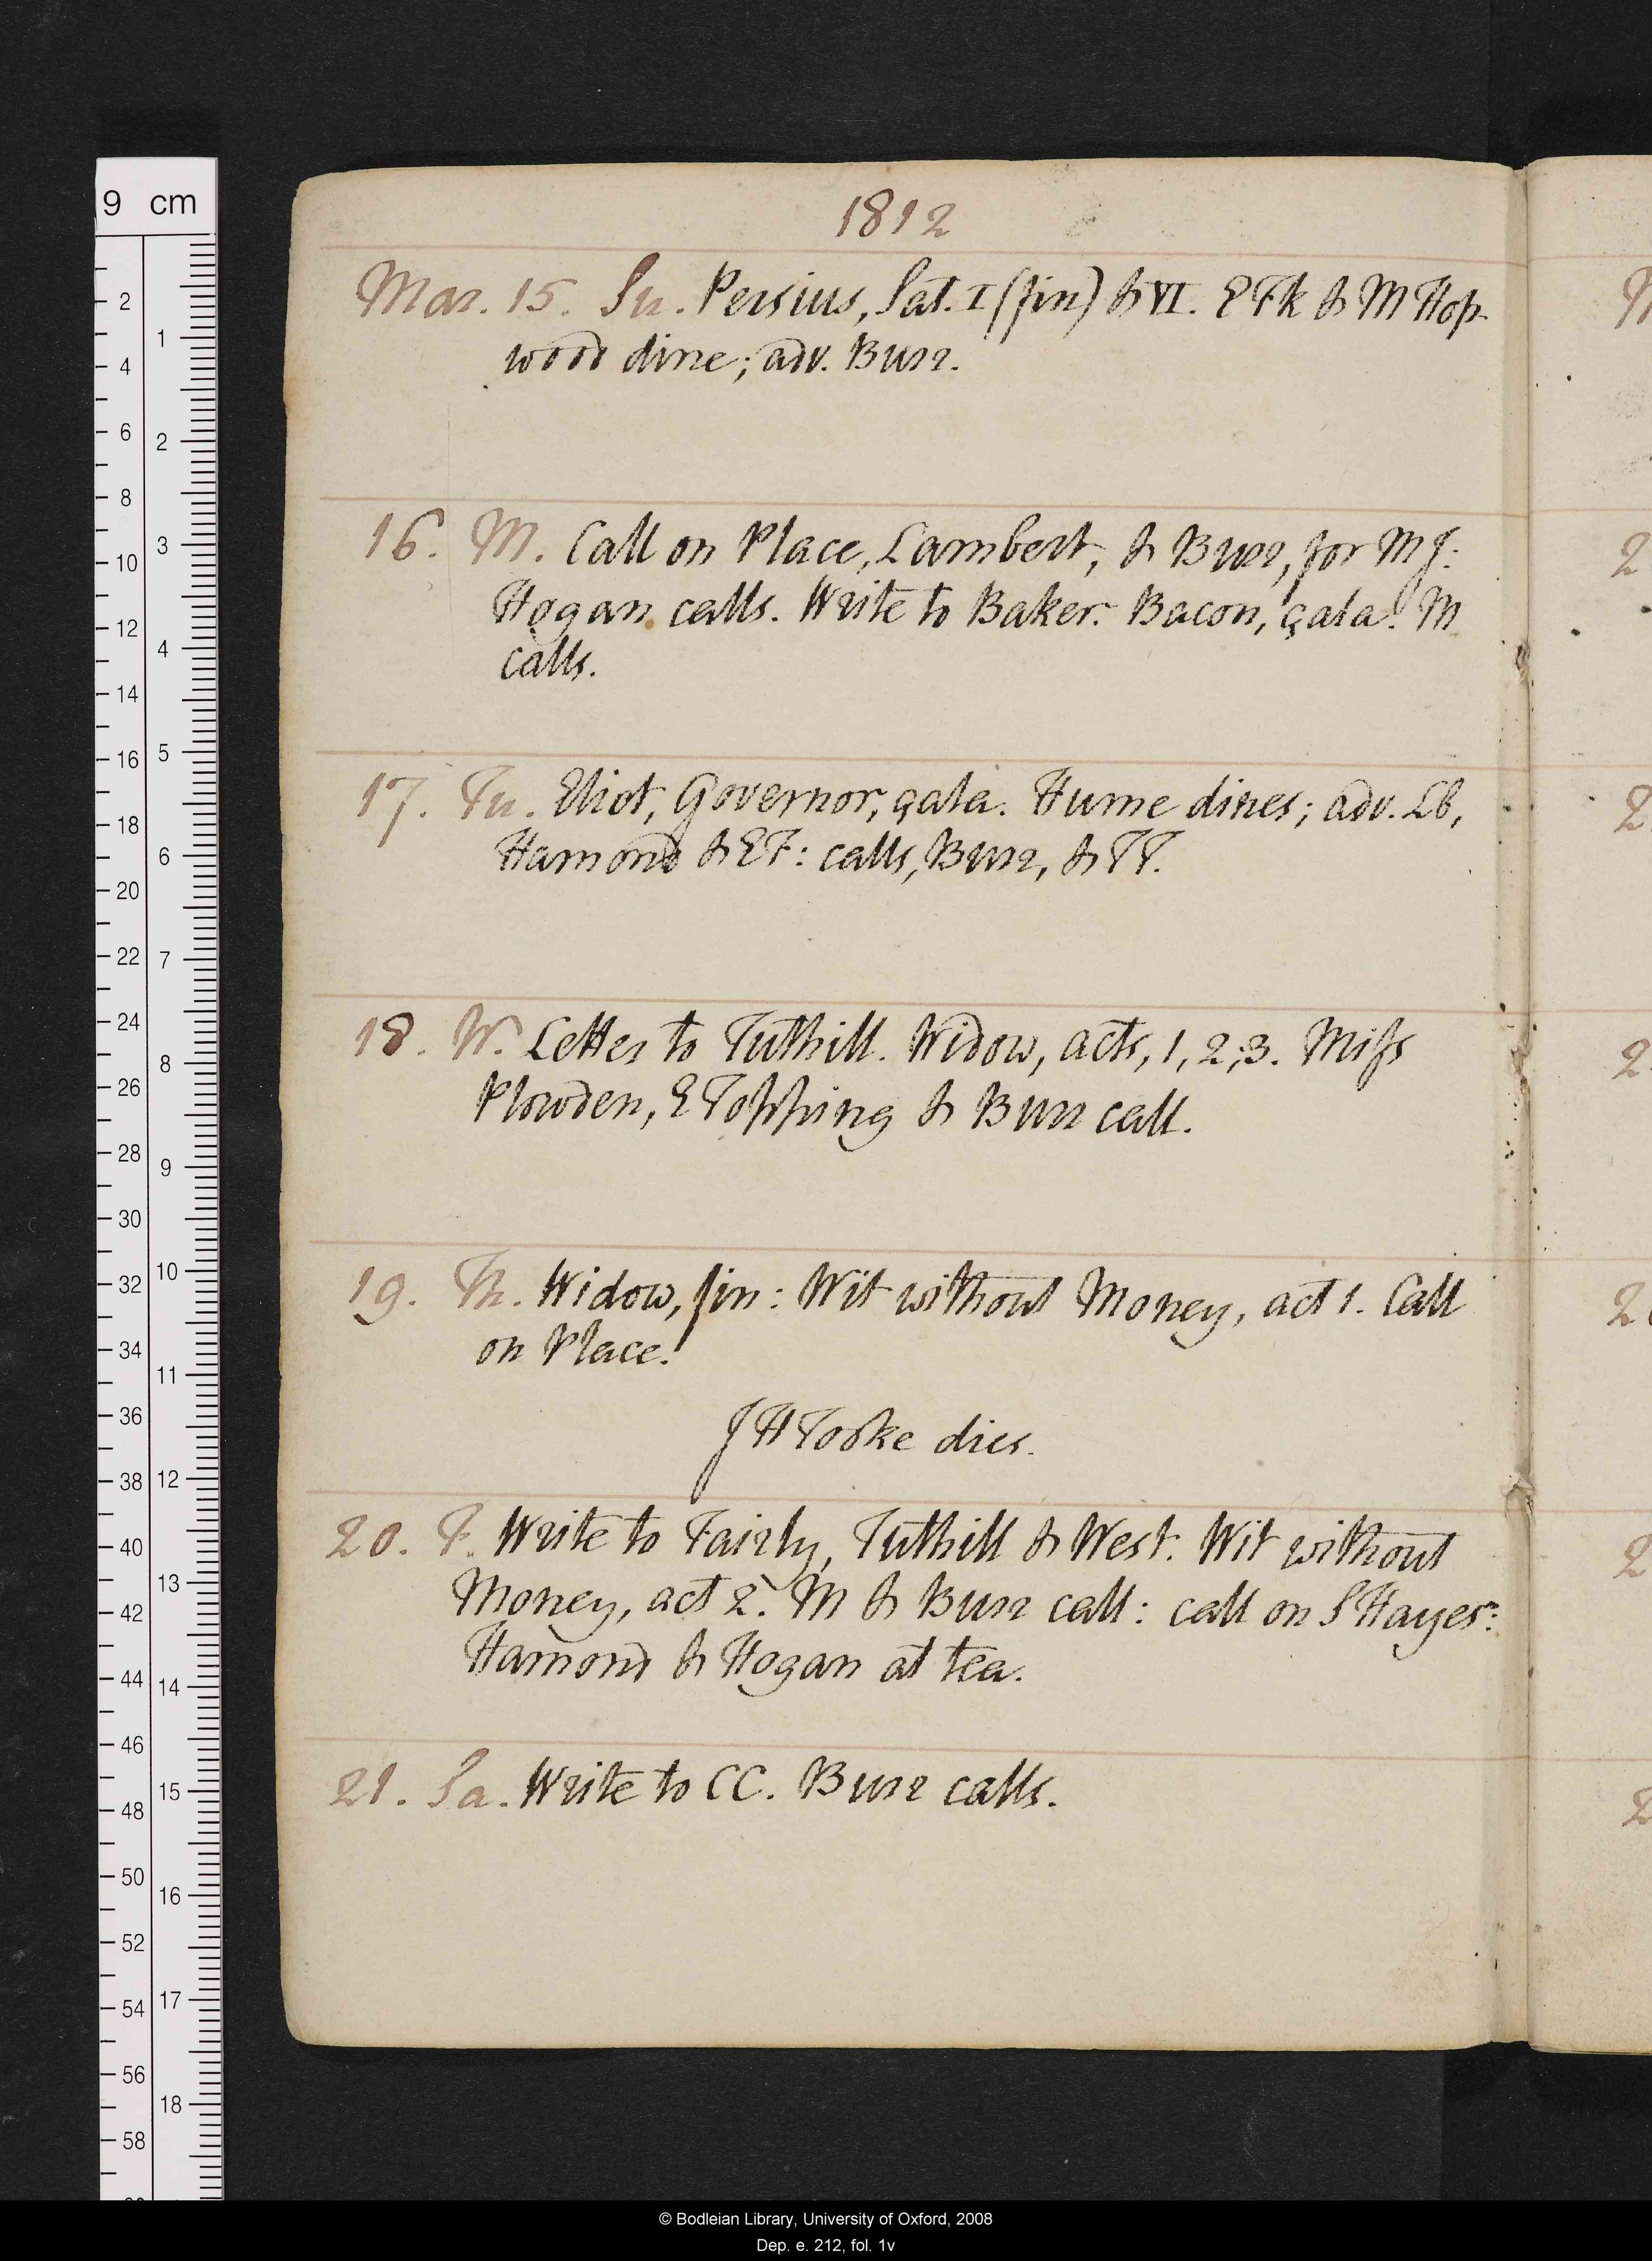 1812
Mar. 15. Su. Persius, Sat. I (fin) & VI. E Fk & M Hop-
wood dine; adv. Burr.
16. M. Call on Place, Lambert, & Burr, for MJ:
Hogan calls. Write to Baker. Bacon, çala. M
calls.
17. Tu. Eliot, Governor, çala. Hume dines; adv. Lb,
Hamond & EF: calls, Burr, & TT.
18. W. Letter to Tuthill. Widow, acts, 1, 2, 3. Miss
Plowden, E Topping & Burr call.
19. Th. Widow, fin: Wit without Money, act 1. Call
on Place.
J H Tooke dies.
20. F. Write to Fairly, Tuthill & West. Wit without
Money, act 2. M & Burr call: call on S Hayes:
Hamond & Hogan at tea.
21. Sa. Write to CC. Burr calls.
9 cm
2
4
6
8
10
12
14
16
18
20
22
24
26
28
30
32
34
36
38
40
42
44
46
48
50
52
54
56
58
1
2
3
4
5
6
7
8
9
10
11
12
13
14
15
16
17
18
© Bodleian Library, University of Oxford, 2008
Dep. e. 212, fol. 1v